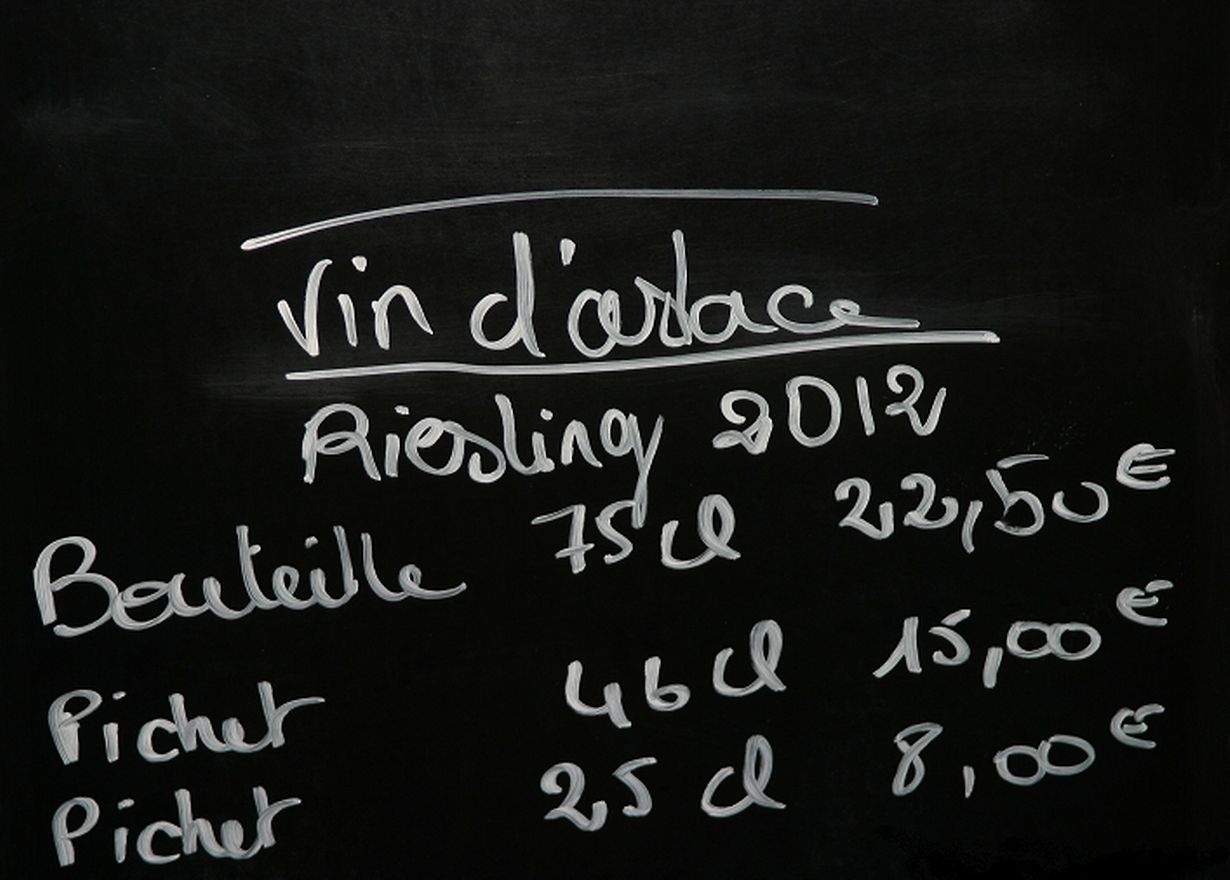 Vin d'alsace
Riesling 2012
Bouteille 75cl 22,50€
Pichet 46cl 15,00€
Pichet 25cl 8,00€